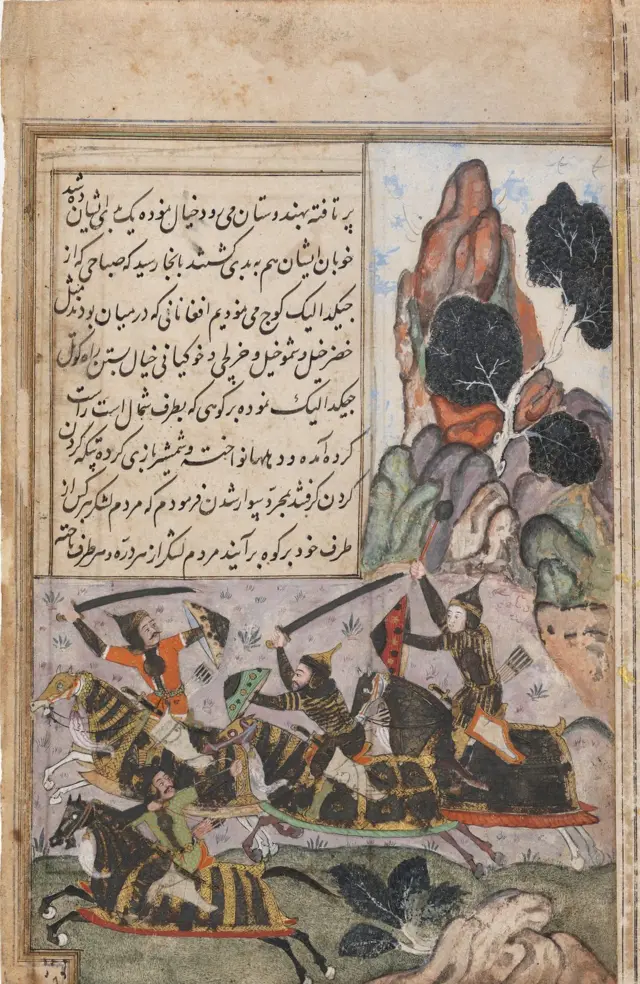 پر تافته بهندوستان می رود خیال نموده یک بدی ایشان ده شد
خوبان ایشان هم به بدی گشتند بانجا رسید که صباحی که از
جیکدالیک کوچ می نمودیم افغانانی که در میان بودند مثل
خضر خیل و شموخیل و خرلجی و خوکیانی خیال بستن راه کوتل
جیکدالیک نموده بر کوهی که بطرف شمال است راست
کرده آمده و دهلها نواخته و شمشیر بازی کرده کردن
کردن گرفتند بمجرد سوار شدن فرمودم که مردم لشکر هر کس از
طرف خود بر کوه برآیند مردم لشکر از هر دره و هر طرف تاخته